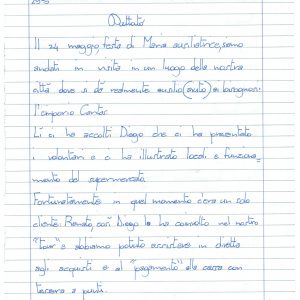 Dettato
Il 24 maggio, festa di Maria ausiliatrice, siamo
andati in visita in un luogo della nostra
città dove si dà realmente ausilio (aiuto) ai bisognosi:
l'emporio Caritas.
Lì ci ha accolti Diego che ci ha presentato
i volontari e ci ha illustrato locali e funziona-
mento del supermercato.
Fortunatamente in quel momento c'era un solo
cliente: Renato, così Diego lo ha coinvolto nel nostro
"tour" e abbiamo potuto assistere in diretta
agli acquisti e al "pagamento" alla cassa con
tessera a punti.